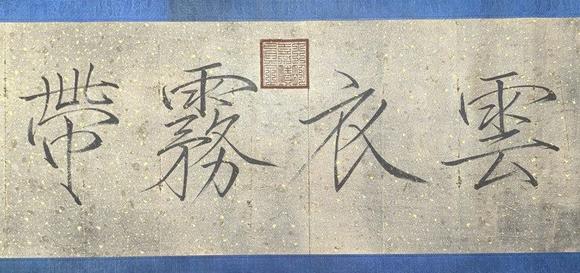 雲衣霧帶